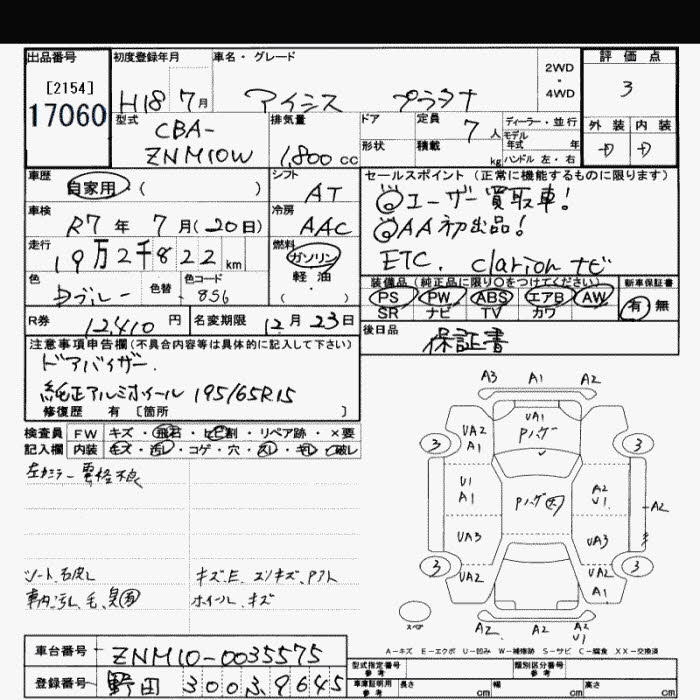 出品番号
[2154]
17060
初度登録年月
H18 7月
車名・グレード
アイシス プラタナ
2WD
・
4WD
評価点
3
外装 内装
D D
型式
CBA-
ZNM10W
排気量
1,800 cc
ドア
形状
定員 7 人
積載 kg
ディーラー・並行
モデル
年式 年
ハンドル 左・右
車歴
自家用・( )
シフト
AT
車検
R7年 7月(20日)
冷房
AAC
走行
19万2千822 km
燃料
ガソリン
軽油
( ・ )
色
Dブルー
色替
色コード
856
セールスポイント(正常に機能するものに限ります)
◎ユーザー買取車!
◎AA初出品!
ETC. clarionナビ
装備品(純正品に限り○をつけてください)
PS PW ABS エアB AW
SR ナビ TV カワ
新車保証書
有・無
R券 12,410円
名変期限 12月23日
後日品
保証書
注意事項申告欄(不具合内容等は具体的に記入して下さい)
ドアバイザー.
純正アルミホイール 195/65R15
修復歴 有 [箇所 ]
検査員
記入欄
FW キズ・飛石・ヒビ割・リペア跡・×要
内装 キズ・汚レ・コゲ・穴・スレ・キレ・破レ
シート.
キズ.E.
車内汚レ.毛.臭
ホイール.キズ
A3 A1 A2
UA1
Pハゲ
UA2
A1
3 3
U1
A1
Pハゲ
A2
U1
A2
UA3 UA3
3 3
UA2 UA2
A1
スペア
A2 A2 A2
U1
A-キズ E-エクボ U-凹み W-補修跡 S-サビ C-腐食 XX-交換済
車台番号 ZNM10-0035575
登録番号 野田 300ふ9645
型式指定番号
参考
類別区分番号
参考
車庫証明用
参考
長さ cm 幅 cm 高さ cm